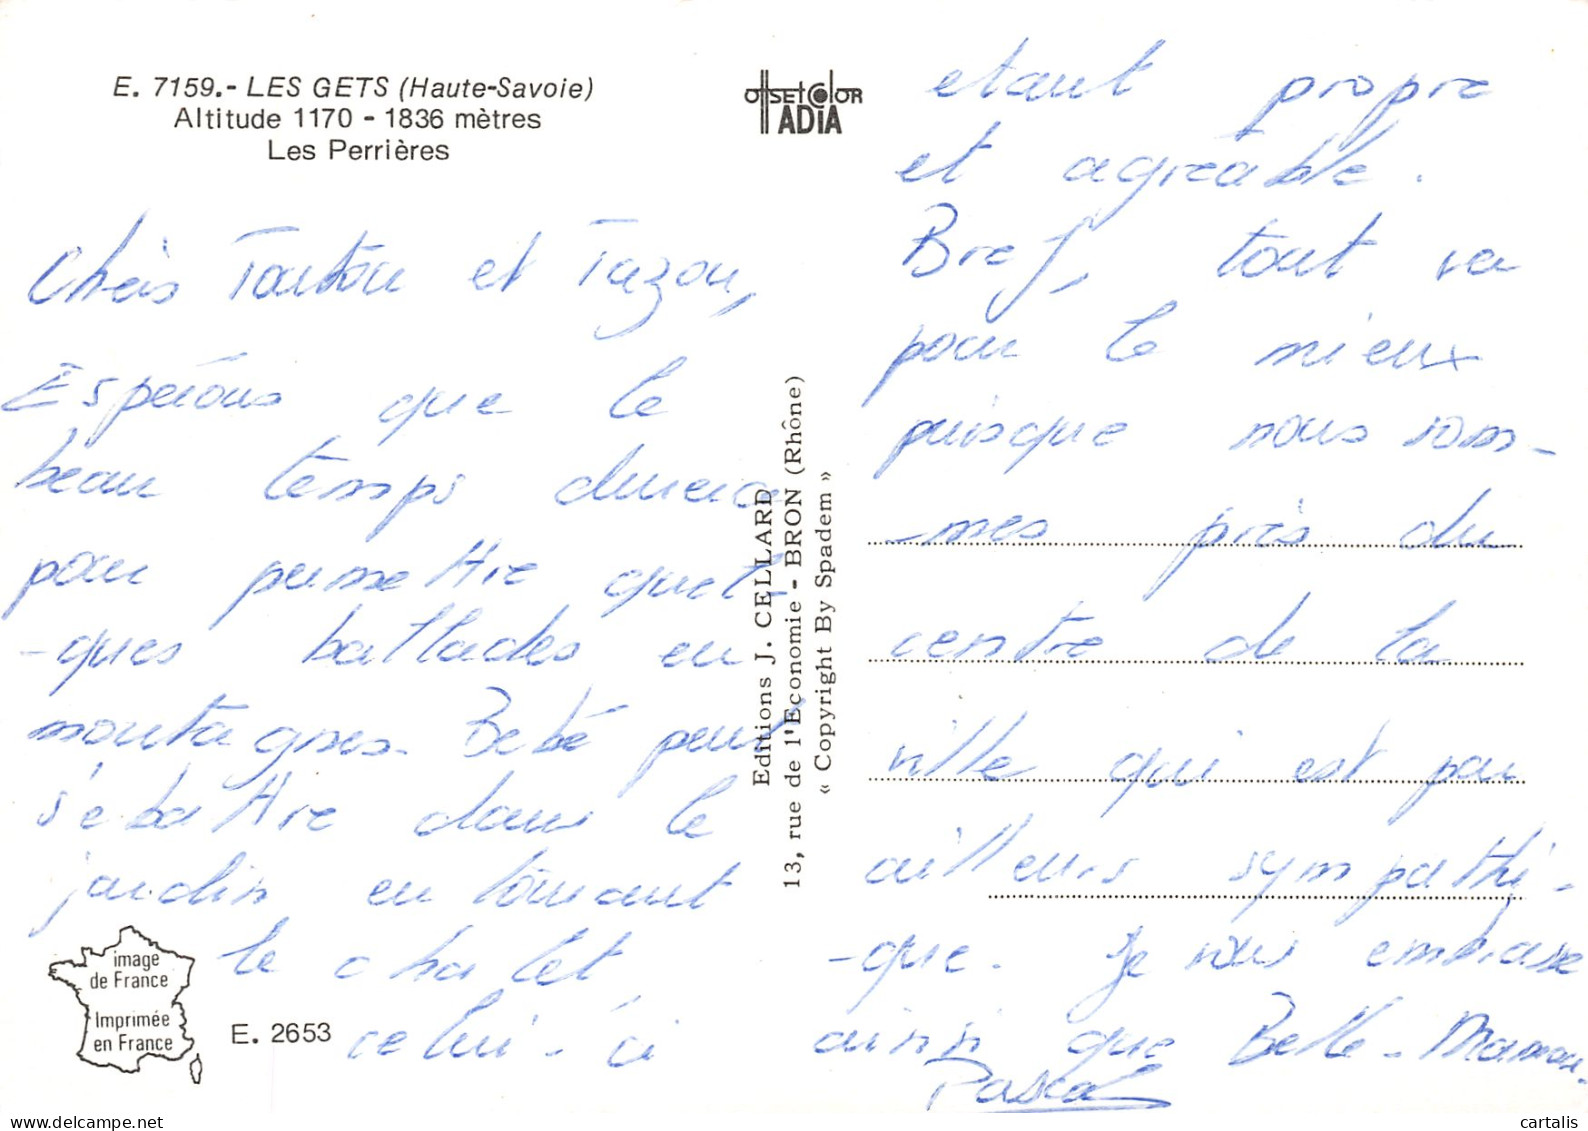 E. 7159.- LES GETS (Haute-Savoie)
Altitude 1170 - 1836 mètres
Les Perrières
OffSEt COlOR
ADiA
Chers Tonton et Tazou,
Espérons que le
beau temps durera
pour permettre quel-
-ques ballades en
montagnes. Bébé peut
s'ebattre dans le
jardin entourant
le chalet,
celui-ci
image
de France
Imprimée
en France
E. 2653
Editions J. CELLARD
13, rue de l'Economie - BRON (Rhône)
« Copyright By Spadem »
etant propre
et agréable.
Bref, tout va
pour le mieux
puisque nous som-
-mes près du
centre de la
ville qui est par
ailleurs sympathi-
-que. Je vous embrasse
ainsi que Belle-Maman.
Pascal
cartalis